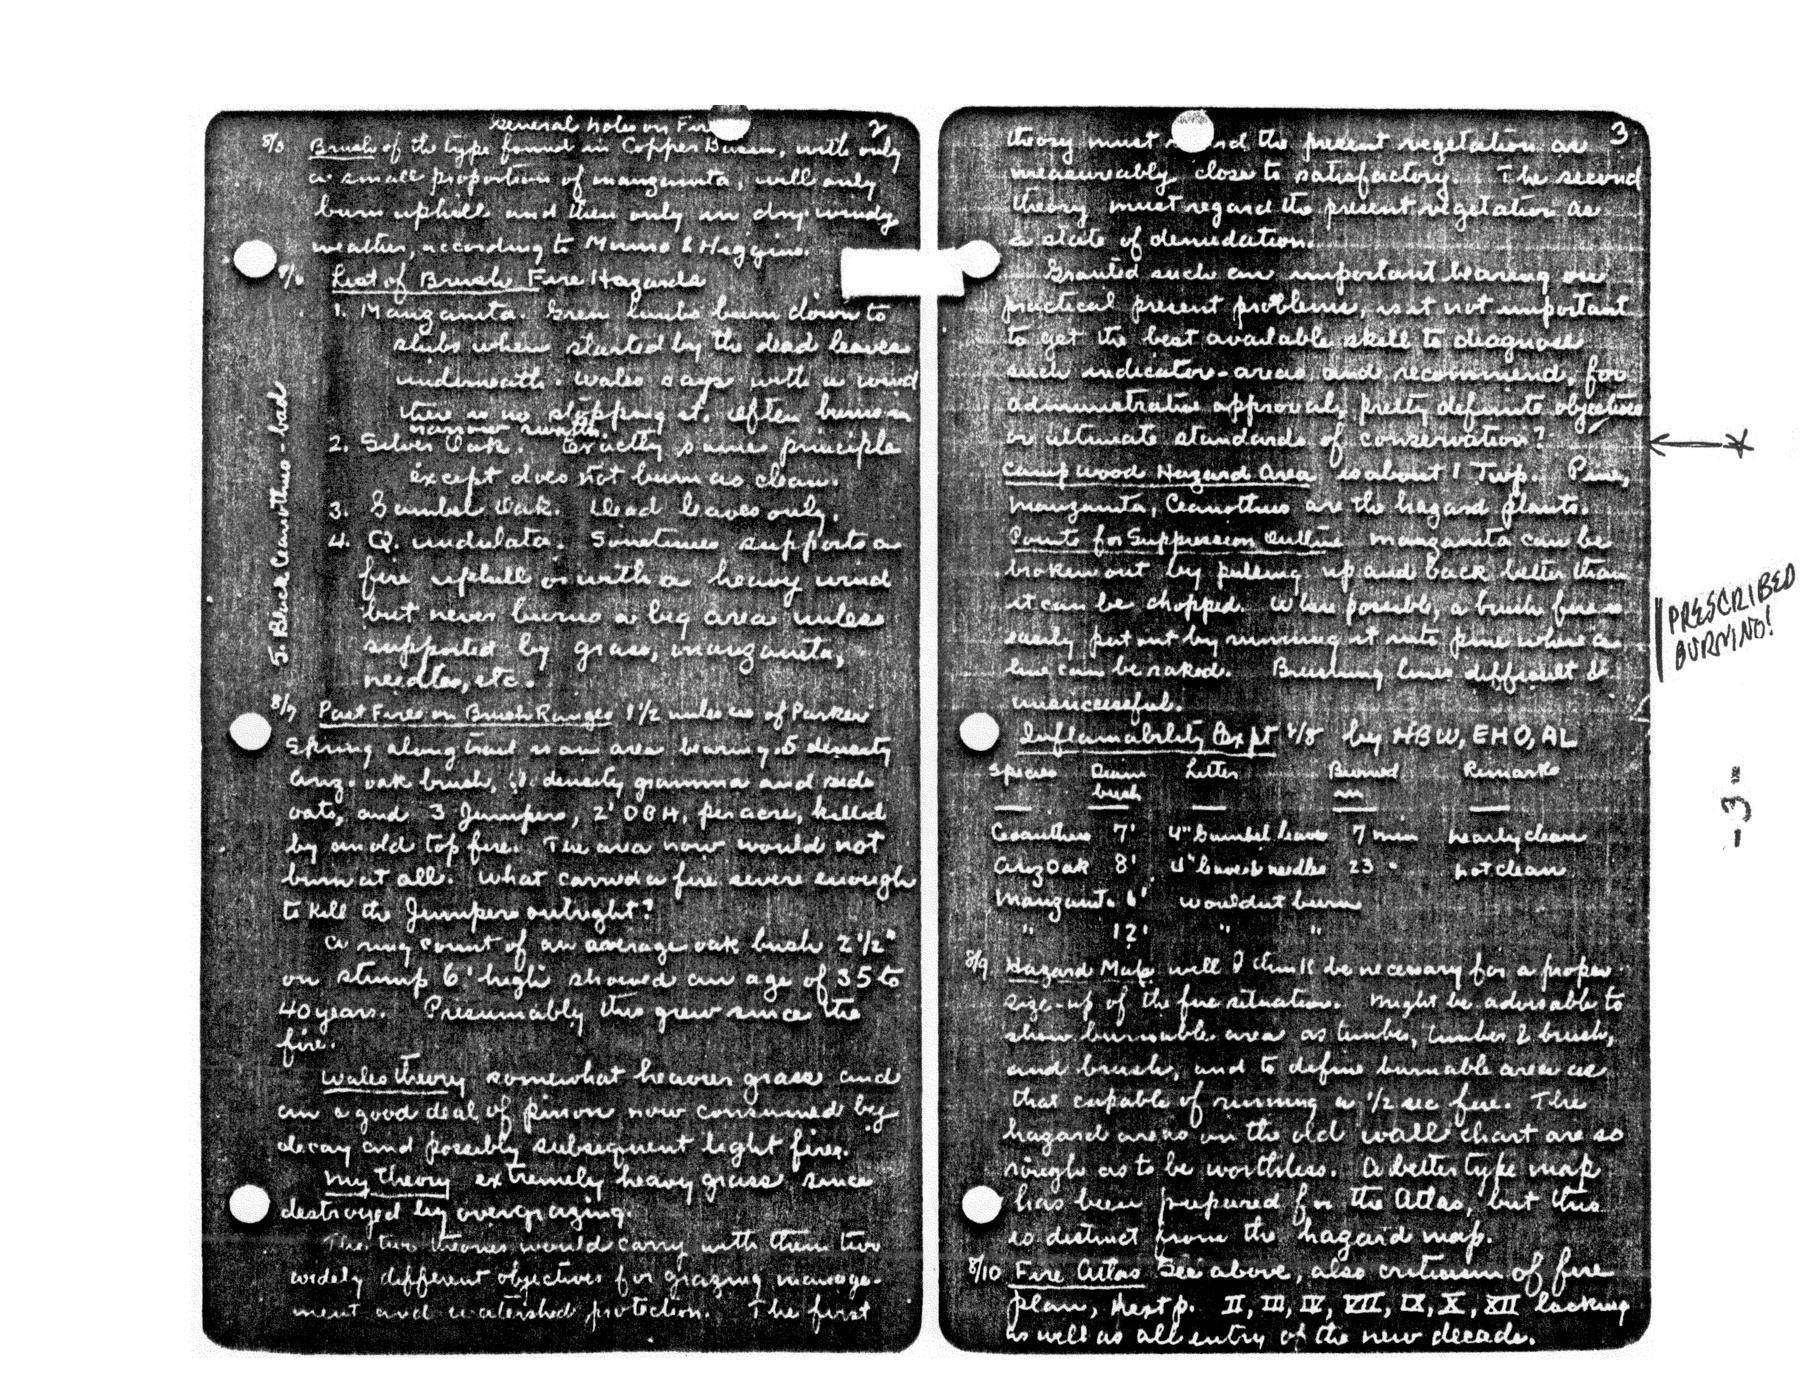 General notes on Fire 2
8/5 Brush of the type found in Copper Basin, with only
a small proportion of manzanita, will only
burn uphill and then only in dry windy
weather, according to Munro & Higgins.
8/6 List of Brush Fire Hazards
1. Manzanita. Green limbs burn down to
stubs when started by the dead leaves
underneath. Wales says with a wind
there is no stopping it. Often burns in
narrow swaths.
2. Silver Oak. Exactly same principle
except does not burn as clean.
3. Gambel Oak. Dead leaves only.
4. Q. undulata. Sometimes supports a
fire uphill or with a heavy wind
but never burns a big area unless
supported by grass, manzanita,
needles, etc.
5. Black Ceanothus - bad
8/7 Past Fires on Brush Ranges 1 1/2 miles w of Parker
Spring along trail is an area bearing .5 density
Ariz. oak brush, .1 density gramma and side
oats, and 3 Junipers, 2' DBH, per acre, killed
by an old top fire. The area now would not
burn at all. What carried a fire severe enough
to kill the Junipers outright?
A ring count of an average oak bush 2 1/2"
on stump 6' high showed an age of 35 to
40 years. Presumably this grew since the
fire.
Wales theory somewhat heavier grass and
a good deal of pinon now consumed by
decay and possibly subsequent light fires.
My theory extremely heavy grass since
destroyed by overgrazing.
The two theories would carry with them two
widely different objectives for grazing manage-
ment and watershed protection. The first
3
theory must regard the present vegetation as
measureably close to satisfactory. The second
theory must regard the present vegetation as
a state of denudation.
Granted such an important bearing on
practical present problems, is it not important
to get the best available skill to diagnose
such indicator-areas, and recommend, for
administrative approval, pretty definite objectives
or ultimate standards of conservation?
Camp Wood Hazard Area is about 1 Twp. Pine,
Manzanita, Ceanothus are the hazard plants.
Points for Suppression Outline Manzanita can be
broken out by pulling up and back better than
it can be chopped. When possible, a brush fire is
easily put out by running it into pine where a
line can be raked. Brushing lines difficult &
unsuccessful.
PRESCRIBED
BURNING!
Inflamability Expt 8/8 by HBW, EHO, AL
Species Diam bush Litter Burned in Remarks
Ceanothus 7' 4" Gambel leaves 7 min nearly clean
Ariz Oak 8' 4" leaves & needles 23 " not clean
Manzanita 6' wouldn't burn
" 12' " "
-3-
8/9 Hazard Map will I think be necessary for a proper
size-up of the fire situation. Might be advisable to
show burnable area as timber, timber & brush,
and brush, and to define burnable area as
that capable of running a 1/2 sec fire. The
hazard areas on the old wall chart are so
rough as to be worthless. A better type map
has been prepared for the Atlas, but this
is distinct from the hazard map.
8/10 Fire Atlas See above, also criticism of fire
plan, next p. II, III, IV, VII, IX, X, XII lacking
as well as all entry of the new decade.